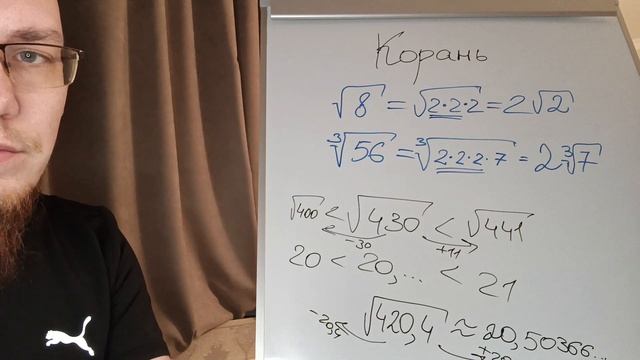 Корань
√8 = √2·2·2 = 2√2
³√56 = ³√2·2·2·7 = 2 ³√7
√400 < √430 < √441
-30 +11
20 < 20,... < 21
√420,4 ≈ 20,50366...